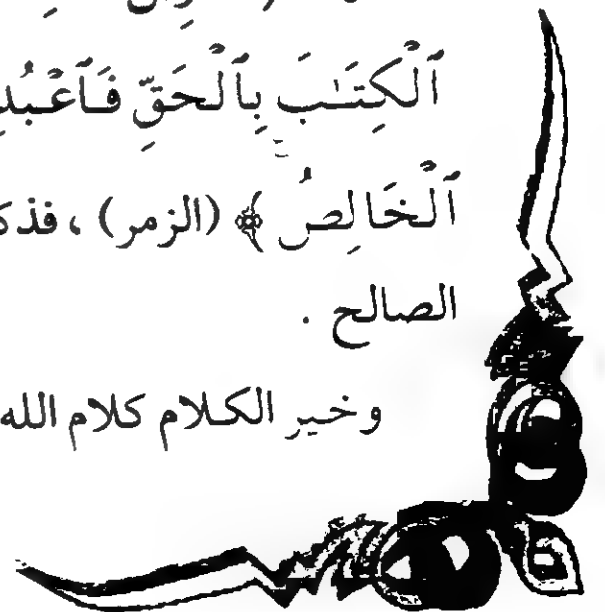 ٱلْكِتَـٰبَ بِٱلْحَقِّ فَٱعْبُدِ
ٱلْخَالِصُ ﴾ (الزمر) ،
الصالح .
وخير الكلام كلام الله